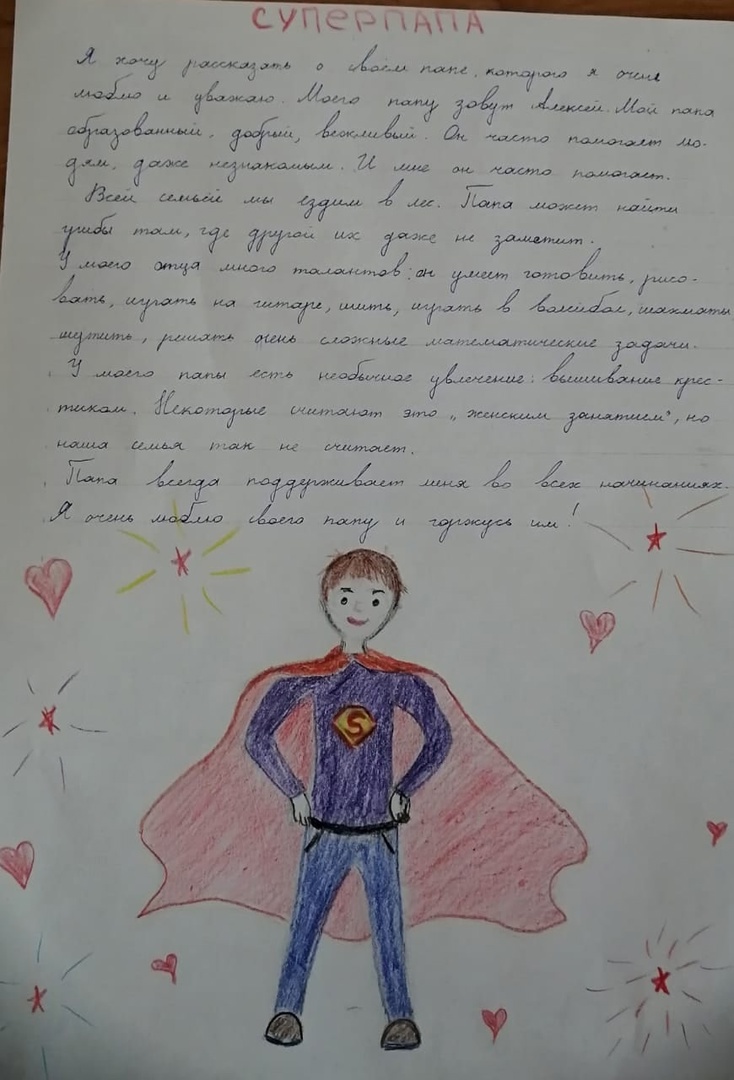 СУПЕРПАПА
Я хочу рассказать о своём папе, которого я очень
люблю и уважаю. Моего папу зовут Алексей. Мой папа
образованный, добрый, вежливый. Он часто помогает лю-
дям, даже незнакомым. И мне он часто помогает.
Всей семьёй мы ездим в лес. Папа может найти
грибы там, где другой их даже не заметит.
У моего отца много талантов: он умеет готовить, рисо-
вать, играть на гитаре, шить, играть в волейбол, шахматы
шутить, решать очень сложные математические задачи.
У моего папы есть необычное увлечение: вышивание крес-
тиком. Некоторые считают это „женским занятием", но
наша семья так не считает.
Папа всегда поддерживает меня во всех начинаниях.
Я очень люблю своего папу и горжусь им!
S